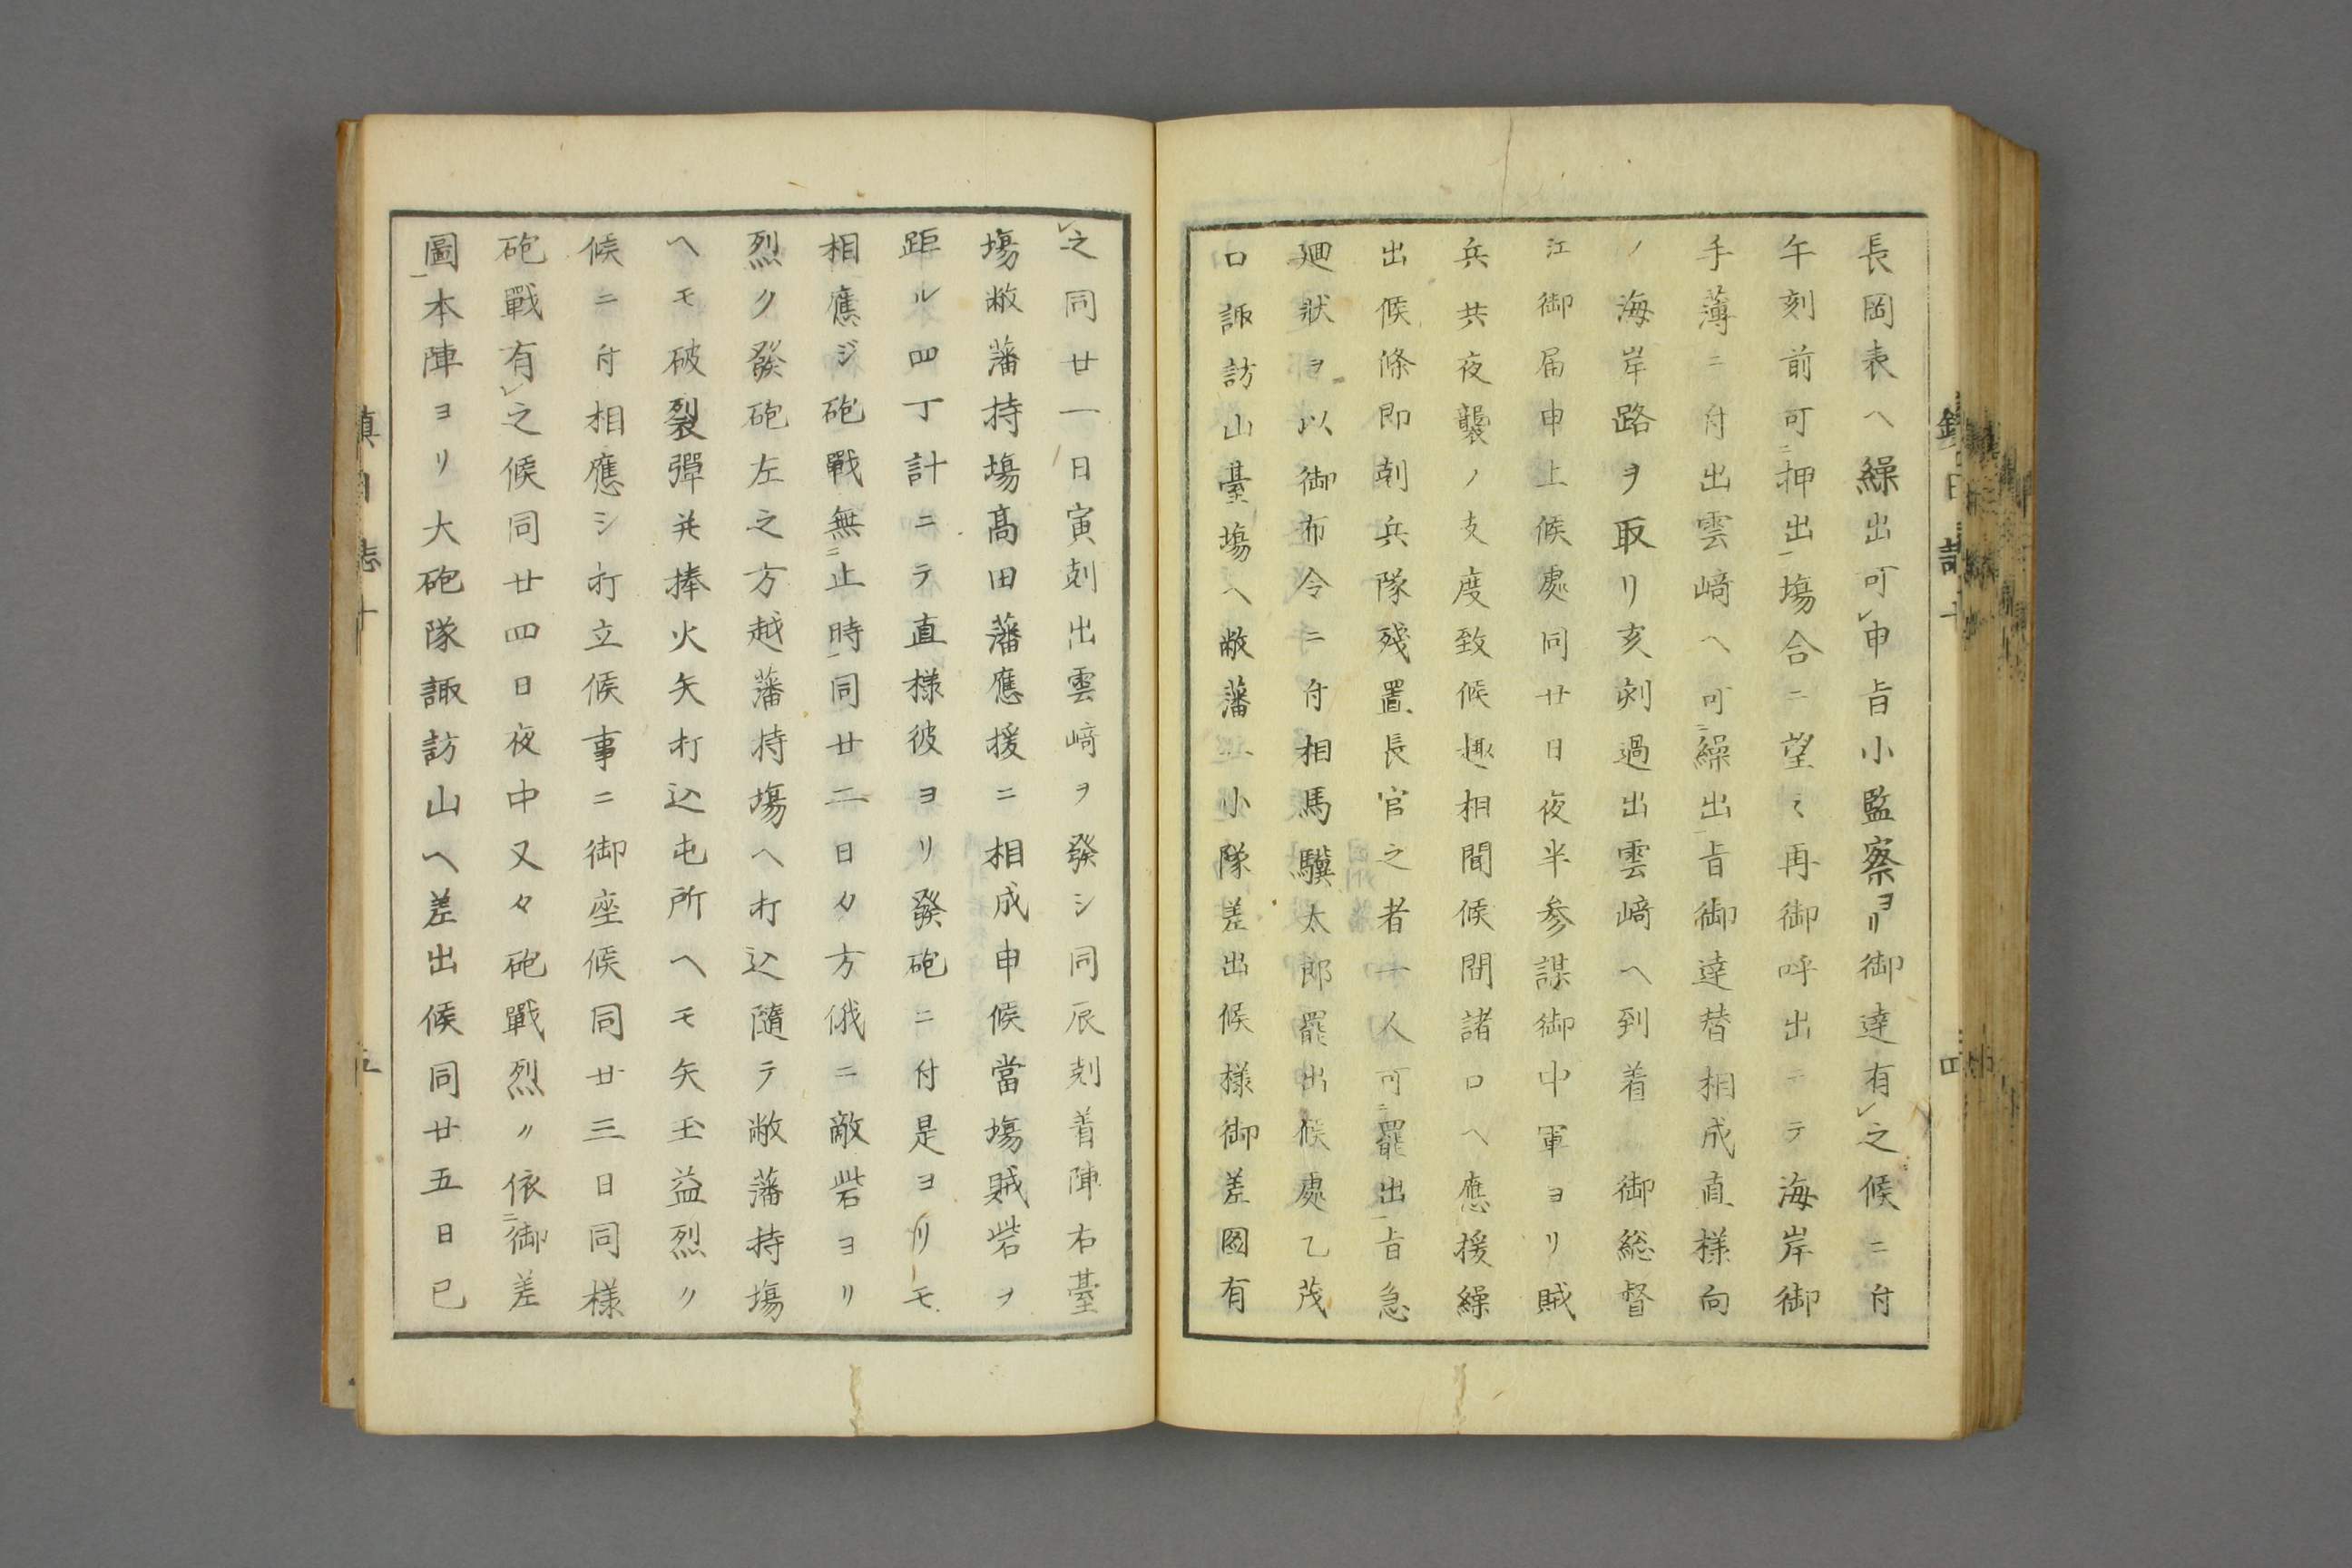 長岡表ヘ繰出可㆑申旨小監察ヨリ御達有㆑之候ニ付
午刻前可㆓押出㆒塲合ニ望ミ再御呼出ニテ海岸御
手薄ニ付出雲﨑ヘ可㆓繰出㆒旨御達替相成直様向
ノ海岸路ヲ取リ亥刻過出雲﨑ヘ到着御総督
江御届申上候處同廿日夜半参謀御中軍ヨリ賊
兵共夜襲ノ支度致候趣相聞候間諸口ヘ應援繰
出候條即刻兵隊殘置長官之者一人可㆓罷出㆒旨急
廻狀ヲ以御布令ニ付相馬驥太郎罷出候處乙茂
口諏訪山臺塲ヘ敝藩一小隊差出候様御差圖有
㆑之同廿一日寅刻出雲﨑ヲ發シ同辰刻着陣右臺
塲敝藩持塲髙田藩應援ニ相成申候當塲賊砦ヲ
距ル四丁計ニテ直様彼ヨリ發砲ニ付是ヨリモ
相應ジ砲戰無㆓止時㆒同廿二日夕方俄ニ敵砦ヨリ
烈ク發砲左之方越藩持塲ヘ打込隨テ敝藩持塲
ヘモ破裂彈并捧火矢打込屯所ヘモ矢玉益烈ク
候ニ付相應シ打立候事ニ御座候同廿三日同様
砲戰有㆑之候同廿四日夜中又々砲戰烈〃依㆓御差
圖㆒本陣ヨリ大砲隊諏訪山ヘ差出候同廿五日已